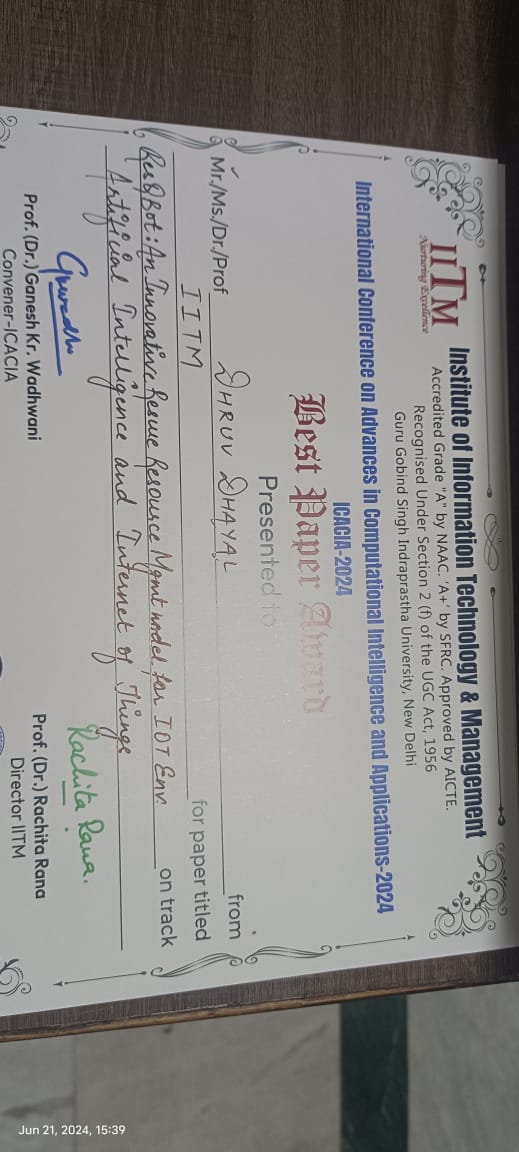 IITM
Nurturing Excellence
Institute of Information Technology & Management
Accredited Grade "A" by NAAC. 'A+' by SFRC. Approved by AICTE.
Recognised Under Section 2 (f) of the UGC Act, 1956
Guru Gobind Singh Indraprastha University, New Delhi
International Conference on Advances in Computational Intelligence and Applications-2024
ICACIA-2024
Best Paper Award
Presented to
Mr./Ms./Dr./Prof DHRUV DHAYAL from
IITM for paper titled
ResQBot: An Innovative Rescue Resource Mgmt model for IOT Env on track
Artificial Intelligence and Internet of Things
Rachita Rana.
Prof. (Dr.) Ganesh Kr. Wadhwani
Convener-ICACIA
Prof. (Dr.) Rachita Rana
Director IITM
Jun 21, 2024, 15:39